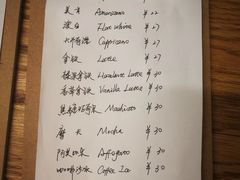 美式 Americano ¥22
澳白 Flat white ¥27
卡布奇诺 Cappuccino ¥27
拿铁 Latte ¥27
榛果拿铁 Hazelnut Latte ¥30
香草拿铁 Vanilla Latte ¥30
焦糖玛奇朵 Macchiato ¥30
摩卡 Mocha ¥30
阿芙佳朵 Affogato ¥30
咖啡沙冰 Coffee Ice ¥30